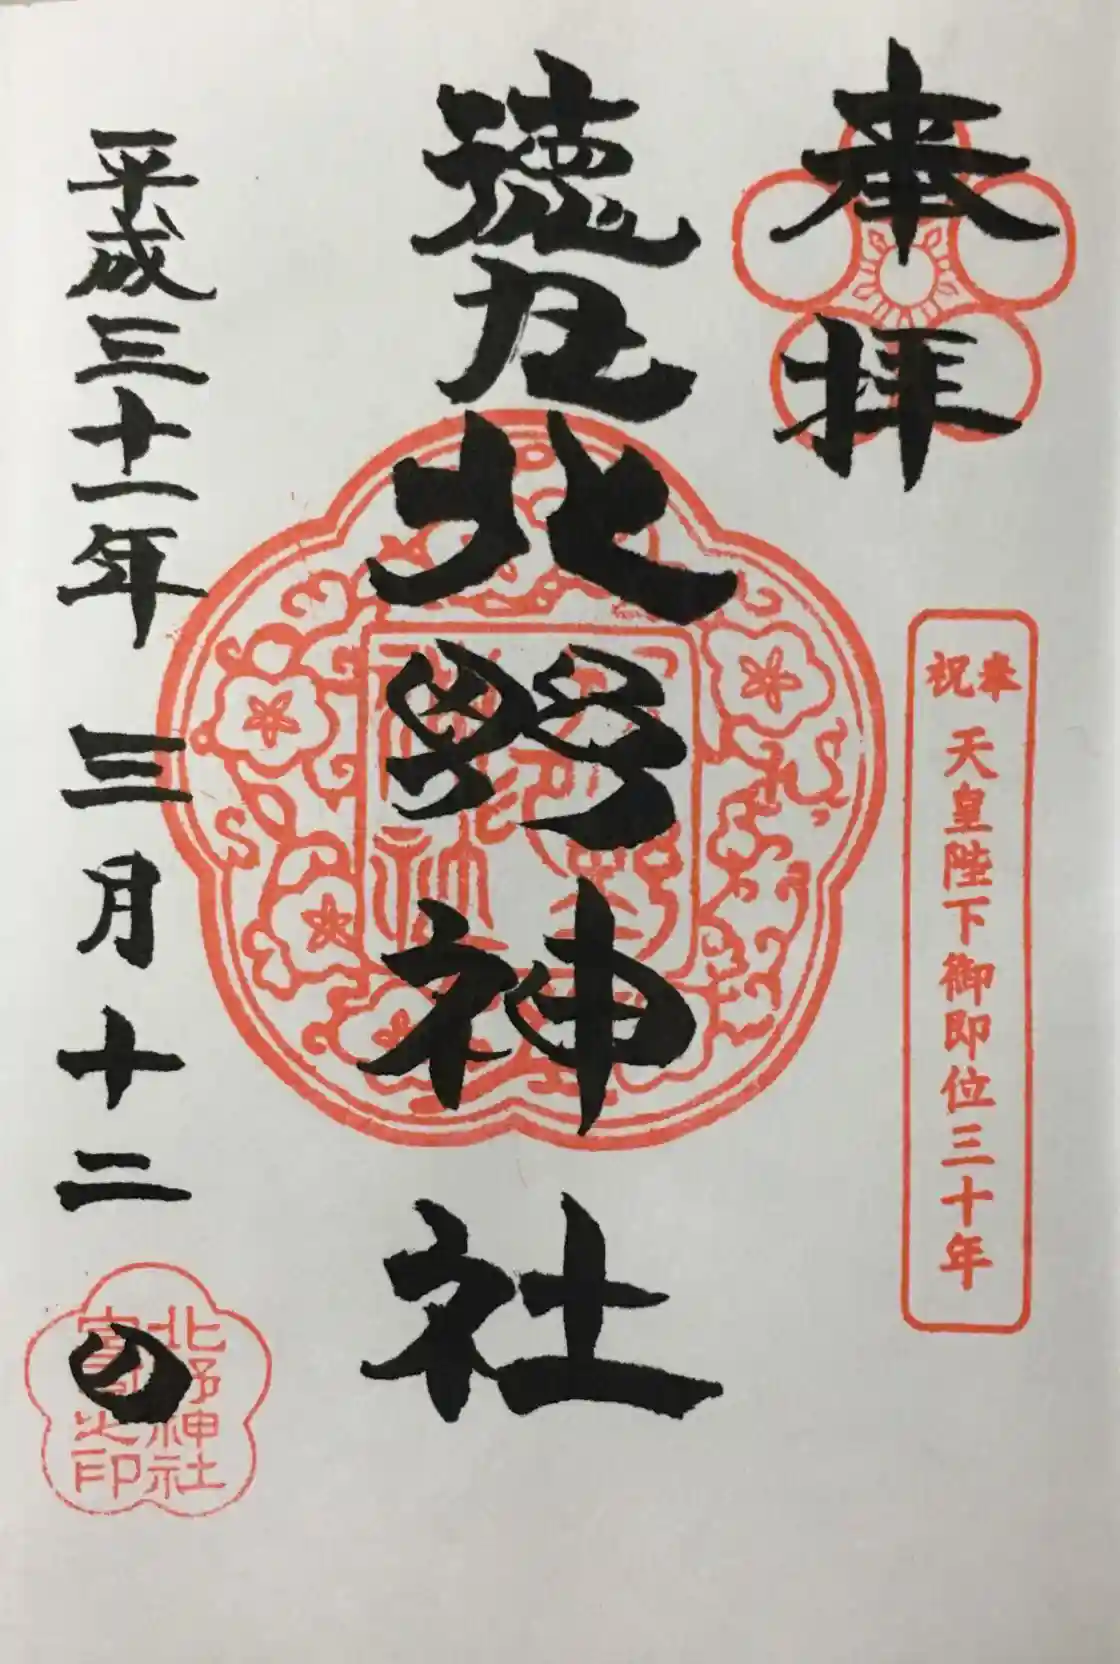 奉拝
奉祝 天皇陛下御即位三十年
徳丸北野神社
平成三十一年 三月十二日
北野神社
宮司之印